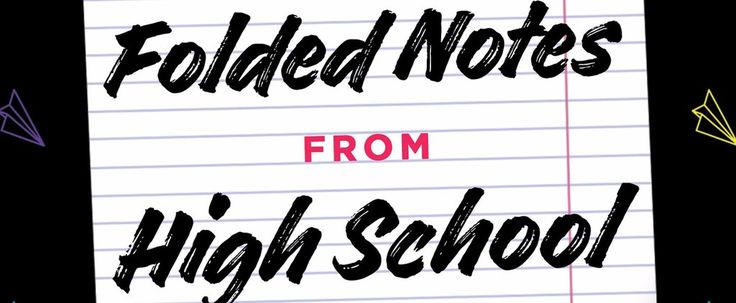 Folded Notes
FROM
High School